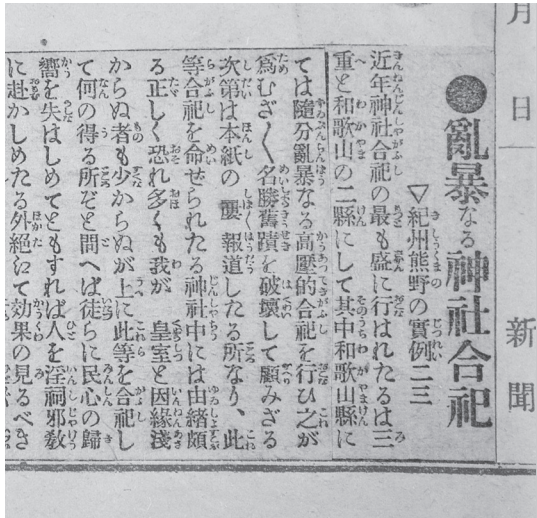 月
日
新聞
●亂暴なる神社合祀
▽紀州熊野の實例二三
近年神社合祀の最も盛に行はれたるは三
重と和歌山の二縣にして其中和歌山縣に
ては隨分亂暴なる高壓的合祀を行ひ之が
爲むざ〱名勝舊蹟を破壞して顧みざる
次第は本紙の屢報道したる所なり、此
等合祀を命せられたる神社中には由緒頗
る正しく恐れ多くも我が 皇室と因緣淺
からぬ者も少からぬが上に此等を合祀し
て何の得る所ぞと問へば徒らに民心の歸
嚮を失はしめてともすれば人を淫祠邪敎
に赴かしめたる外絕えて効果の見るべき